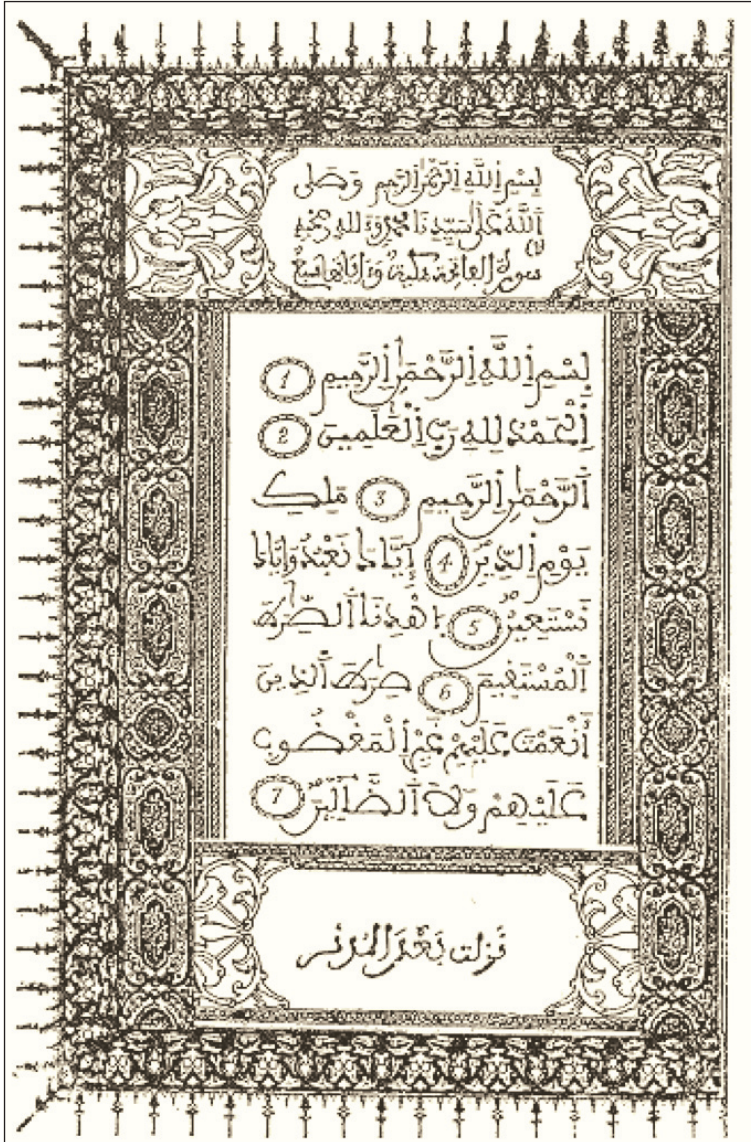 بِسْمِ اِ۬للَّهِ اِ۬لرَّحْمَٰنِ اِ۬لرَّحِيمِ وَصَلَّى
اَ۬للَّهُ عَلَىٰ سَيِّدِنَا مُحَمَّدٍ وَءَالِهِ وَصَحْبِهِ
سُورَةُ الْفَاتِحَةِ مَكِّيَّةٌ وَءَايَاتُهَا سَبْعٌ
بِسْمِ اِ۬للَّهِ اِ۬لرَّحْمَٰنِ اِ۬لرَّحِيمِ 1
اِ۬لْحَمْدُ لِلهِ رَبِّ اِ۬لْعَٰلَمِينَ 2
اَ۬لرَّحْمَٰنِ اِ۬لرَّحِيمِ 3 مَلِكِ
يَوْمِ اِ۬لدِّينِ 4 إِيَّاكَ نَعْبُدُ وَإِيَّاكَ
نَسْتَعِينُ 5 اِ۪هْدِنَا اَ۬لصِّرَٰطَ
اَ۬لْمُسْتَقِيمَ 6 صِرَٰطَ اَ۬لذِينَ
أَنْعَمْتَ عَلَيْهِمْ غَيْرِ اِ۬لْمَغْضُوبِ
عَلَيْهِمْ وَلَا اَ۬لضَّآلِّينَ 7
نزلت بَعْدَ الْمُدثر